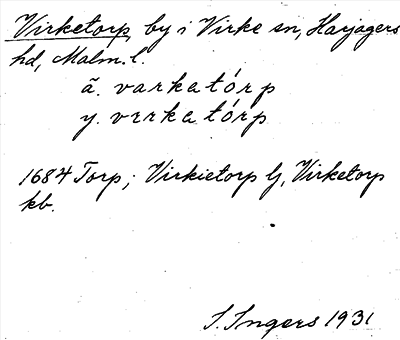 Virketorp, by i Virke sn, Harjagers
hd, Malm. l.
ã. varkatórp
y. verkatórp
1684 Torp; Virkietorp lj, Virketorp
kb.
I. Ingers 1931